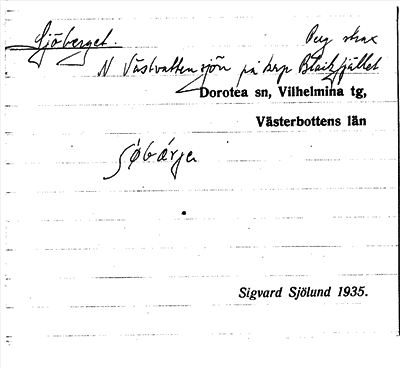 Sjöberget. Berg strax
N Västvattensjön på krp Blaikfjället
Dorotea sn, Vilhelmina tg,
Västerbottens län
sjøbárje
Sigvard Sjölund 1935.